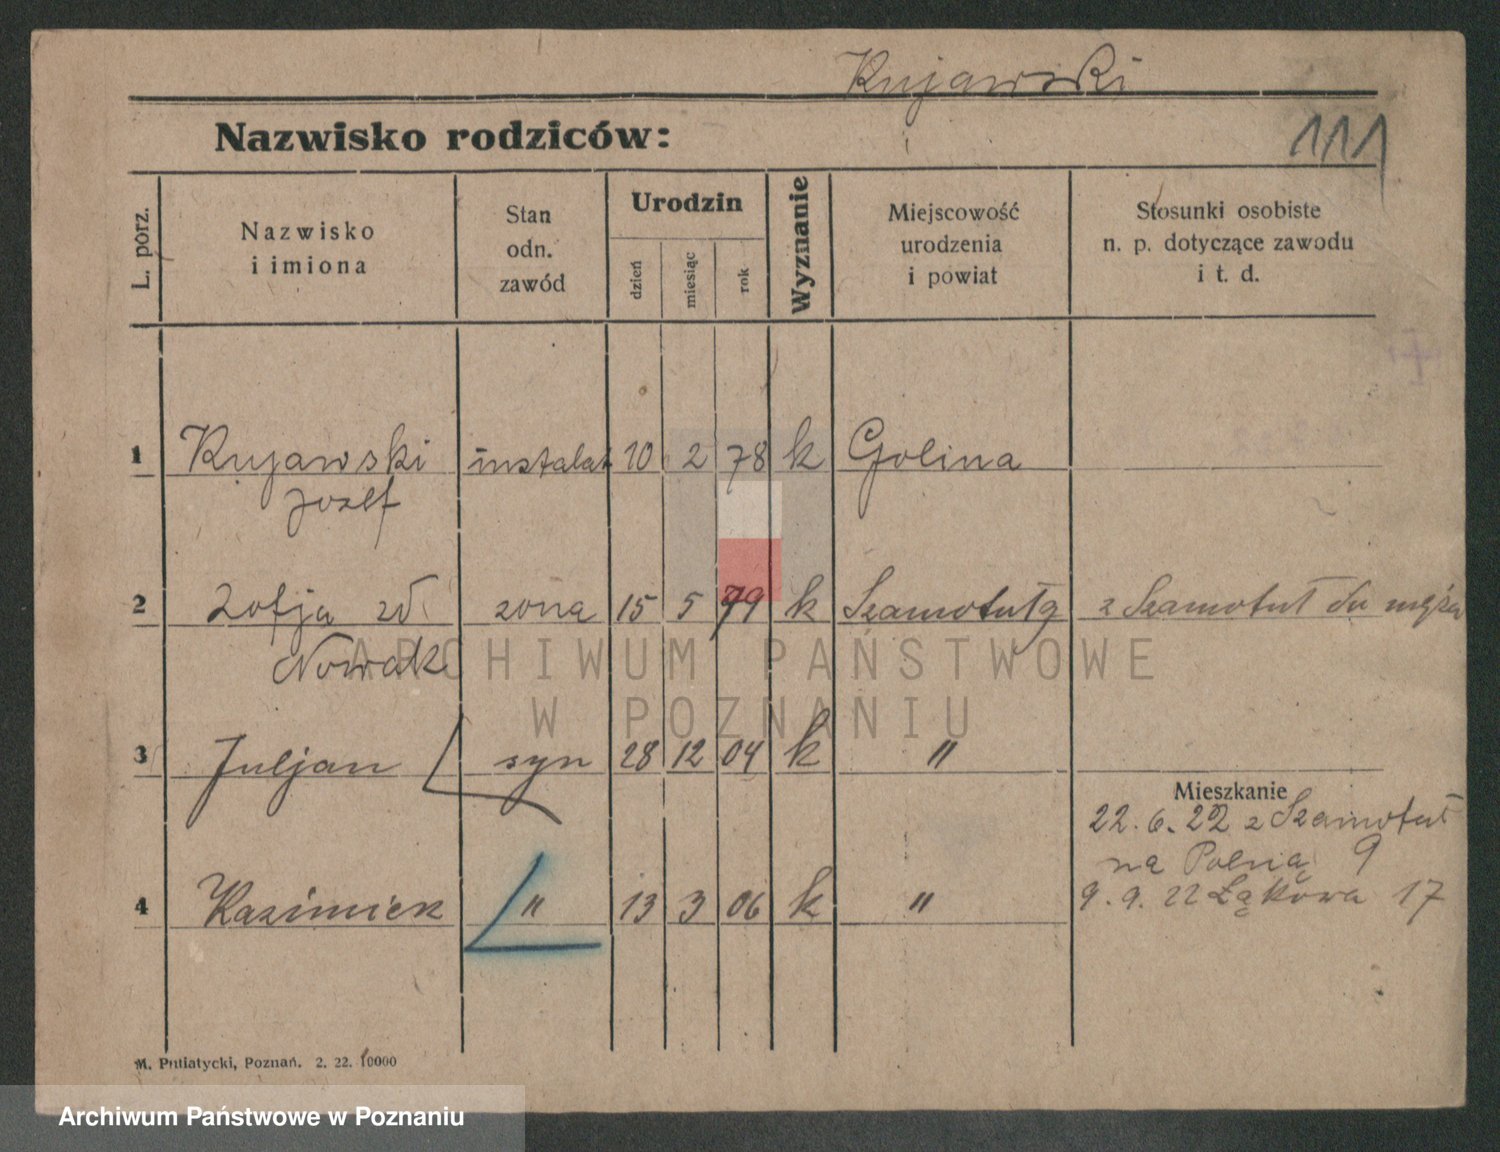 Kujawski
Nazwisko rodziców:
111
L. porz.
Nazwisko
i imiona
Stan
odn.
zawód
Urodzin
dzień
miesiąc
rok
Wyznanie
Miejscowość
urodzenia
i powiat
Stosunki osobiste
n. p. dotyczące zawodu
i t. d.
1 Kujawski instalat 10 2 78 k Golina
Jozef
2 Zofja zd. zona 15 5 79 k Szamotuły z Szamotuł do męża
Nowak
ARCHIWUM PAŃSTWOWE
W POZNANIU
3 Juljan syn 28 12 04 k "
Mieszkanie
22. 6. 22 z Szamotuł
na Polną 9
4 Kazimierz " 13 3 06 k " 9. 9. 22 Łąkowa 17
M. Putiatycki, Poznań. 2. 22. 10000
Archiwum Państwowe w Poznaniu